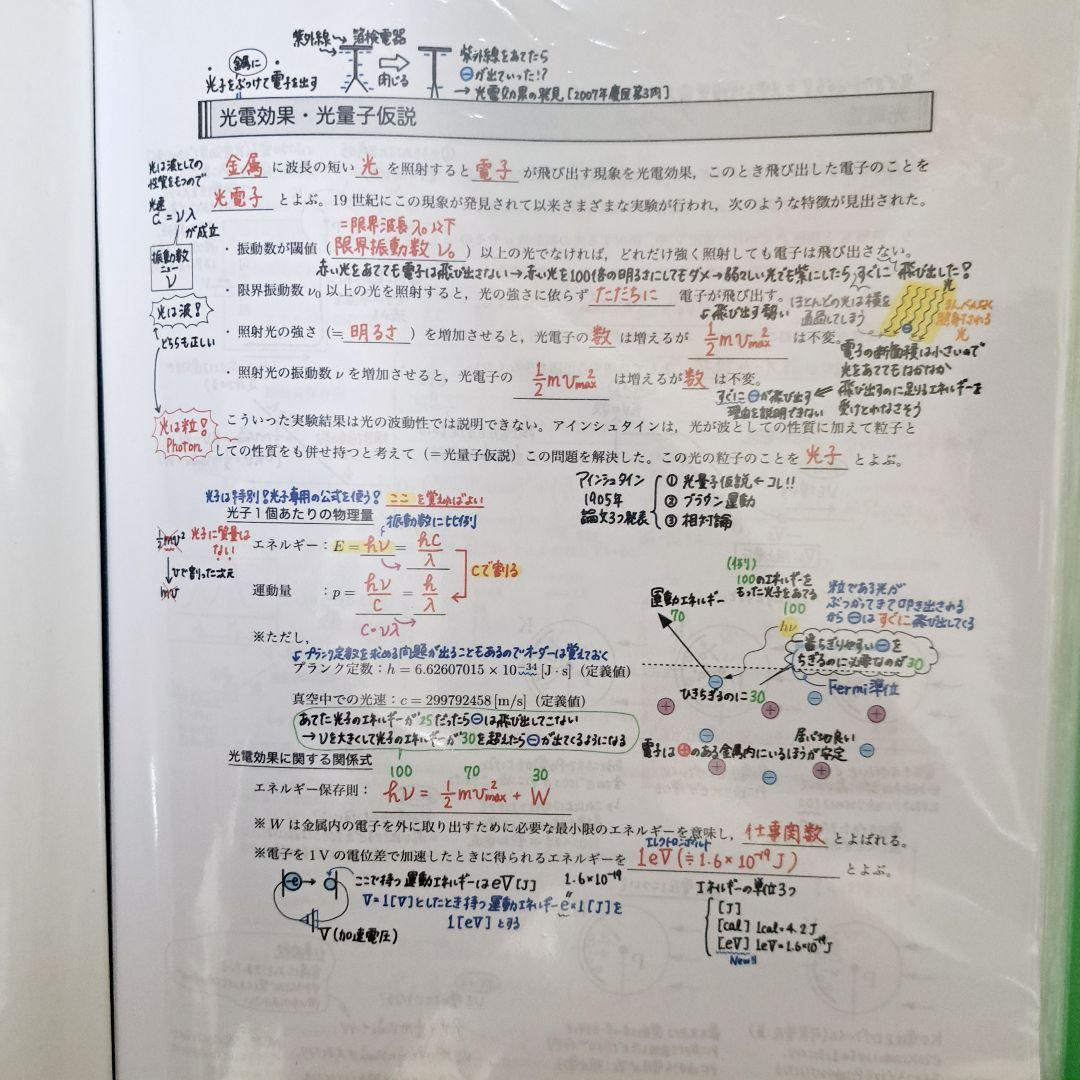 紫外線→
箔検電器
紫外線をあてたら
⊖が出ていった!?
→ 光電効果の発見 [2007年慶医第3問]
閉じる
光子をぶつけて電子を出す
光電効果・光量子仮説
光は波としての
性質をもつので
光速
C = νλ
が成立
振動数
ニュー
ν
光は波!
どちらも正しい
光は粒!
Photon
金属 に波長の短い 光 を照射すると 電子 が飛び出す現象を光電効果，このとき飛び出した電子のことを
光電子 とよぶ。19 世紀にこの現象が発見されて以来さまざまな実験が行われ，次のような特徴が見出された。
=限界波長 λ₀ 以下
・振動数が閾値（限界振動数 ν₀）以上の光でなければ，どれだけ強く照射しても電子は飛び出さない。
赤い光をあてても電子は飛び出さない→赤い光を100倍の明るさにしてもダメ→弱々しい光でも紫にしたら，すぐに飛び出した!
・限界振動数 ν₀ 以上の光を照射すると，光の強さに依らず ただちに 電子が飛び出す。
飛び出す勢い
・照射光の強さ（= 明るさ ）を増加させると，光電子の 数 は増えるが 1/2 mv²max は不変。
・照射光の振動数 ν を増加させると，光電子の 1/2 mv²max は増えるが 数 は不変。
ほとんどの光は横を
通過してしまう
光
照射される
光
電子の断面積は小さいので
光をあててもなかなか
飛び出すのに足りるエネルギーを
受けとれなさそう
すぐに⊖が飛び出す
理由を説明できない
こういった実験結果は光の波動性では説明できない。アインシュタインは，光が波としての性質に加えて粒子と
しての性質をも併せ持つと考えて（＝光量子仮説）この問題を解決した。この光の粒子のことを 光子 とよぶ。
アインシュタイン
1905年
論文3つ発表
① 光量子仮説 ← コレ!!
② ブラウン運動
③ 相対論
光子は特別!光子専用の公式を使う! ここを覚えればよい
光子１個あたりの物理量
振動数に比例
1/2 mv² 光子に質量は
ない
↓ vで割った次元
mv
エネルギー：E = hν = hC/λ
Cで割る
運動量 ：p = hν/C = h/λ
C=νλ
※ただし，
プランク定数を求める問題が出ることもあるのでオーダーは覚えておく
プランク定数：h = 6.62607015 × 10⁻³⁴ [J・s]（定義値）
真空中での光速：c = 299792458 [m/s]（定義値）
あてた光子のエネルギーが25だったら⊖は飛び出してこない
→ νを大きくして光子のエネルギーが30を超えたら⊖が出てくるようになる
(例)
100のエネルギーを
もった光子をあてる
100
hν
運動エネルギー
70
粒である光が
ぶつかってきて叩き出される
から⊖はすぐに飛び出してくる
一番ちぎりやすい⊖を
ちぎるのに必要なのが30
ひきちぎるのに30
Fermi準位
居心地良い
電子は⊕のある金属内にいるほうが安定
光電効果に関する関係式
100 70 30
エネルギー保存則： hν = 1/2 mv²max + W
※ W は金属内の電子を外に取り出すために必要な最小限のエネルギーを意味し，仕事関数 とよばれる。
エレクトロンボルト
※電子を 1 V の電位差で加速したときに得られるエネルギーを 1eV (≒1.6×10⁻¹⁹J) とよぶ。
ここで持つ運動エネルギーはeV[J]
1.6×10⁻¹⁹
V=1[V]としたとき持つ運動エネルギーe×1[J]を
1[eV]とする
V(加速電圧)
エネルギーの単位3つ
[J]
[cal] 1cal=4.2J
[eV] 1eV=1.6×10⁻¹⁹J
New!!